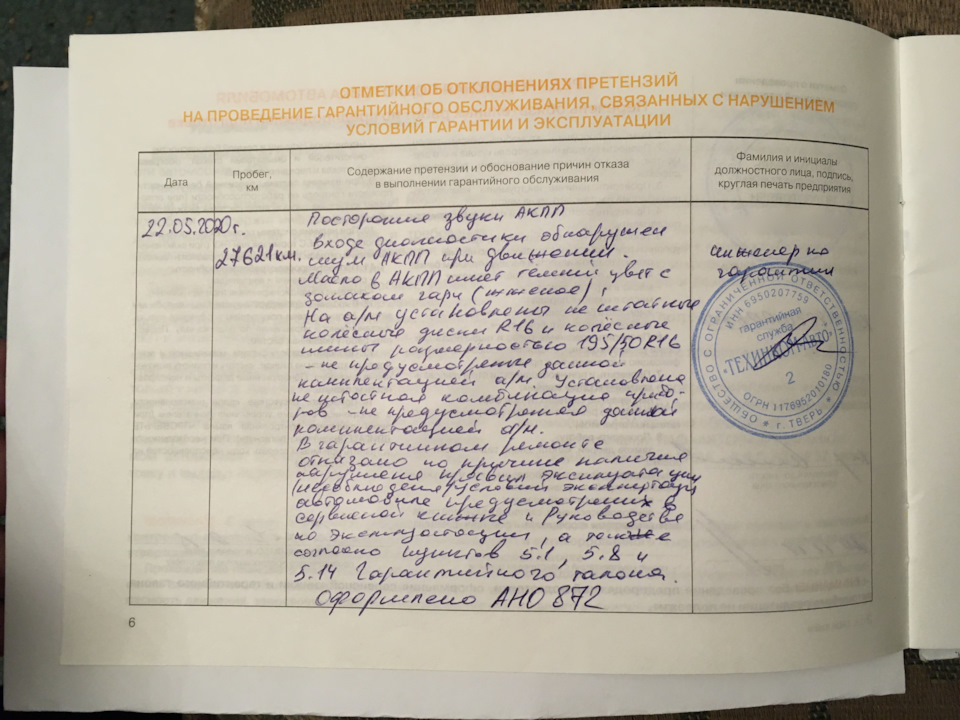 ОТМЕТКИ ОБ ОТКЛОНЕНИЯХ ПРЕТЕНЗИЙ
НА ПРОВЕДЕНИЕ ГАРАНТИЙНОГО ОБСЛУЖИВАНИЯ, СВЯЗАННЫХ С НАРУШЕНИЕМ
УСЛОВИЙ ГАРАНТИИ И ЭКСПЛУАТАЦИИ
Дата
Пробег,
км
Содержание претензии и обоснование причин отказа
в выполнении гарантийного обслуживания
Фамилия и инициалы
должностного лица, подпись,
круглая печать предприятия
22.05.2020г.
27621км.
Посторонние звуки АКПП
Входе диагностики обнаружен
шум АКПП при движении.
Масло в АКПП имеет темный цвет с
запахом гари (жженое),
На а/м установлены не штатные
колёсные диски R16 и колёсные
шины размерностью 195/50R16
- не предусмотренные данной
комплектацией а/м. Установлена
не штатная комбинация прибо-
ров - не предусмотренная данной
комплектацией а/м.
В гарантийном ремонте
отказано по причине наличия
нарушения правил эксплуатации
(несоблюдения) условий эксплуатации
автомобиля предусмотренных в
сервисной книжке и Руководстве
по эксплуатации, а также
согласно пунктов 5.1, 5.8 и
5.14 Гарантийного талона.
Оформлено АНО 872
инженер по
гарантии
ОБЩЕСТВО С ОГРАНИЧЕННОЙ ОТВЕТСТВЕННОСТЬЮ
ИНН 6950207759
гарантийная
служба
"ТЕХИНКОМ-АВТО"
2
ОГРН 1176952010180
г. ТВЕРЬ
6